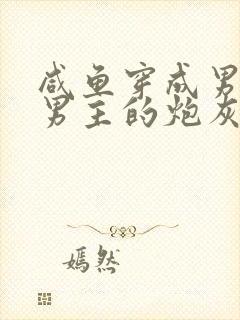 咸鱼穿成男
男主的炮灰
嫣然